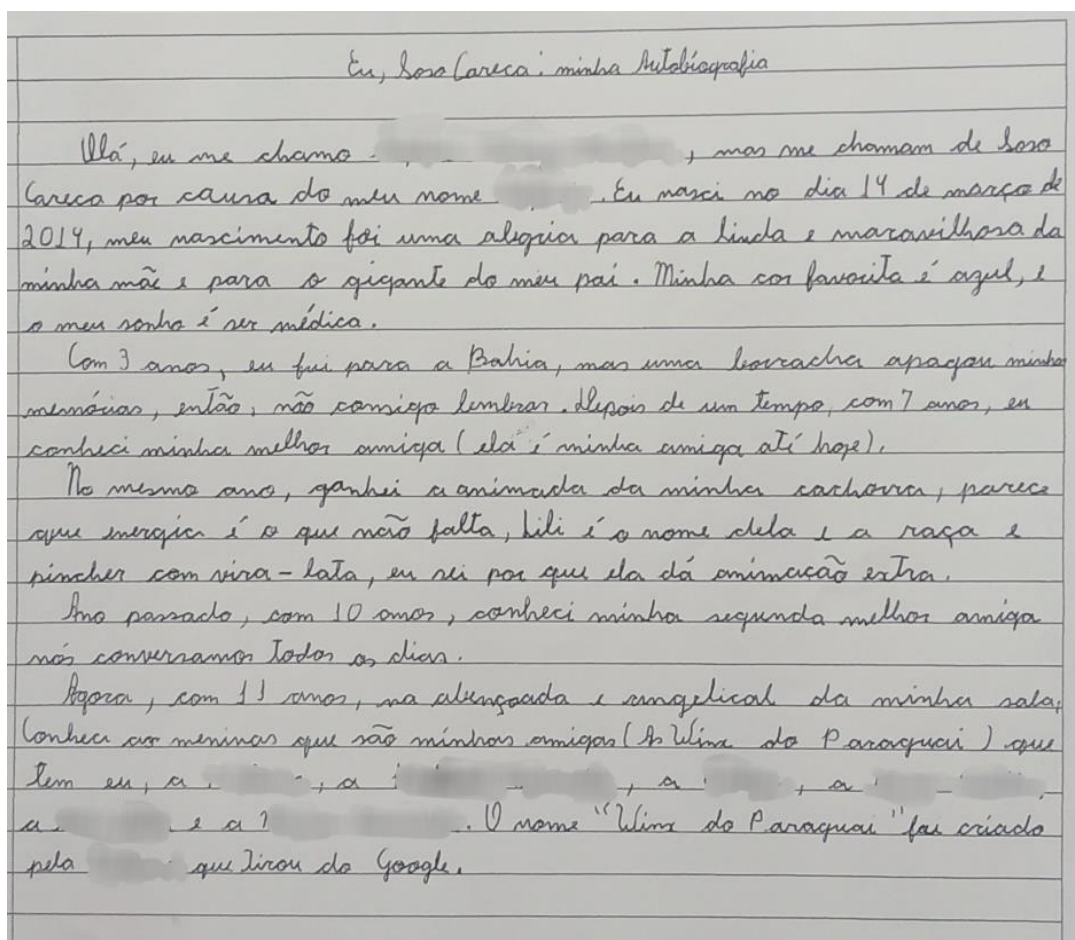 Eu, Soso Careca: minha Autobiografia
Olá, eu me chamo , mas me chamam de Soso
Careca por causa do meu nome . Eu nasci no dia 14 de março de
2014, meu nascimento foi uma alegria para a linda e maravilhosa da
minha mãe e para o gigante do meu pai. Minha cor favorita é azul, e
o meu sonho é ser médica.
Com 3 anos, eu fui para a Bahia, mas uma borracha apagou minhas
memórias, então, não consigo lembrar. Depois de um tempo, com 7 anos, eu
conheci minha melhor amiga (ela é minha amiga até hoje).
No mesmo ano, ganhei a animada da minha cachorra, parece
que energia é o que não falta, Lili é o nome dela e a raça e
pincher com vira-lata, eu sei por que ela dá animação extra.
Ano passado, com 10 anos, conheci minha segunda melhor amiga
nós conversamos todos os dias.
Agora, com 11 anos, na abençoada e angelical da minha sala,
Conheci as meninas que são minhas amigas (As Winx do Paraguai) que
tem eu, a , a , a , a ,
a e a . O nome "Winx do Paraguai" foi criado
pela que tirou do Google.